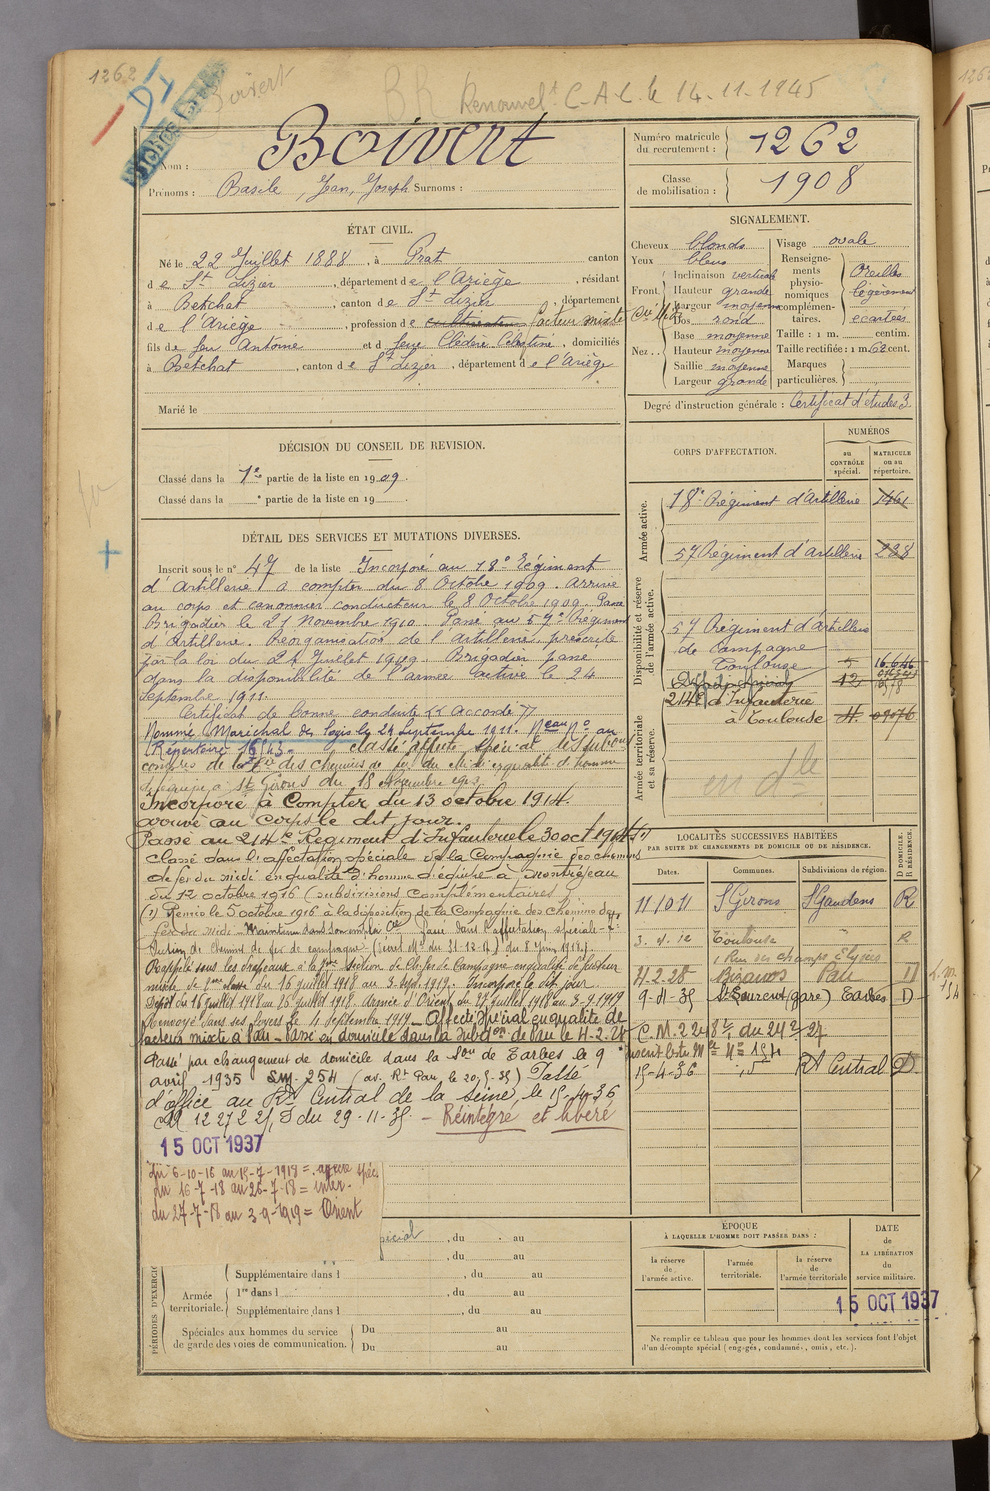 1262
Boivert
Renouvelt C.A.C. le 14.11.1945
Nom : Boivert
Prénoms : Basile, Jean, Joseph Surnoms :
Numéro matricule du recrutement : 1262
Classe de mobilisation : 1908
ÉTAT CIVIL.
Né le 22 Juillet 1888, à Prat canton
de St Lizier, département de l'Ariège, résidant
à Betchat, canton de St Lizier, département
de l'Ariège, profession de cultivateur facteur mixte
fils de feu Antoine et d feue Célestine, domiciliés
à Betchat, canton de St Lizier, département de l'Ariège
Marié le
SIGNALEMENT.
Cheveux blonds
Yeux bleus
Front. Inclinaison verticale
Hauteur grande
Largeur moyenne
Nez. Dos rond
Base moyenne
Hauteur moyenne
Saillie moyenne
Largeur grande
Visage ovale
Renseignements physionomiques complémentaires. Oreilles légèrement écartées
Taille : 1 m. centim.
Taille rectifiée : 1 m. 62 cent.
Marques particulières.
Degré d'instruction générale : Certificat d'études 3
DÉCISION DU CONSEIL DE REVISION.
Classé dans la 1re partie de la liste en 1909.
Classé dans la e partie de la liste en 19
DÉTAIL DES SERVICES ET MUTATIONS DIVERSES.
Inscrit sous le n° 47 de la liste Incorporé au 18e Régiment
d'Artillerie à compter du 8 Octobre 1909. Arrivé
au corps et canonnier conducteur le 8 Octobre 1909. Passé
Brigadier le 21 Novembre 1910. Passé au 57e Régiment
d'Artillerie. Réorganisation de l'Artillerie prescrite
par la loi du 24 Juillet 1909. Brigadier passé
dans la disponibilité de l'armée active le 24
Septembre 1911.
Certificat de bonne conduite "Accordé"
Nommé Maréchal des Logis le 24 Septembre 1911. Neau No au
Répertoire classé affecté spécial
des chemins de fer du Midi en qualité d'homme
d'équipe à St Girons du 18 Novembre 1912
Incorporé à Compter du 13 octobre 1914.
arrivé au corps le dit jour.
Passé au 214e Régiment d'Infanterie le 30 oct 1914 (1)
classé dans l'affectation spéciale de la Compagnie des chemins
de fer du midi en qualité d'homme d'équipe à Montréjeau
du 12 octobre 1916 (subdivisions complémentaires)
(1) Remis le 5 octobre 1916 à la disposition de la Compagnie des Chemins de
fer du Midi. Maintenu dans son emploi
Rappelé sous les drapeaux à la section de Ch. fer de Campagne en qualité de facteur
mixte du 16 juillet 1918 au 3 sept. 1919. Incorporé le dit jour
Dépôt du 16 juillet 1918 au 26 juillet 1918. Armée d'Orient du 27 juillet 1918 au 3-9-1919
Renvoyé dans ses foyers le 4 septembre 1919. Affecté spécial en qualité de
facteur mixte à Pau - Passé en domicile dans la Subdon de Pau le 4-2-28
Passé par changement de domicile dans la Son de Tarbes le 9
avril 1935 254 (av. Rt Pau, le 20-5-35) Passé
d'office au Rt Central de la Seine, le 15-4-36
CM 12272 du 29-11-35 - Réintégré et libéré
15 OCT 1937
du 6-10-16 au 15-7-1918 =
du 16-7-18 au 26-7-18 = inter.
du 27-7-18 au 3-9-1919 = Orient
CORPS D'AFFECTATION.
NUMÉROS
au CONTRÔLE spécial.
MATRICULE ou au répertoire.
Armée active.
18e Régiment d'Artillerie 1461
57 Régiment d'Artillerie 238
Disponibilité et réserve de l'armée active.
57 Régiment d'Artillerie
de campagne
Toulouse
214e d'Infanterie
à Toulouse
Armée territoriale et sa réserve.
LOCALITÉS SUCCESSIVES HABITÉES
PAR SUITE DE CHANGEMENTS DE DOMICILE OU DE RÉSIDENCE.
Dates. Communes. Subdivisions de région. D DOMICILE. R RÉSIDENCE.
11/0 11 St Girons St Gaudens R
3.4.12 Toulouse " R
1 Rue des Champs Elysées
4.2.28 Bizanos Pau D
9-4-35 St Laurent (gare) Tarbes D
15-4-36 Rt Central D
spécial, du au
, du au
PÉRIODES D'EXERCI
Supplémentaire dans l , du au
Armée territoriale. 1re dans l , du au
Supplémentaire dans l , du au
Spéciales aux hommes du service de garde des voies de communication. Du au
Du au
ÉPOQUE
À LAQUELLE L'HOMME DOIT PASSER DANS :
la réserve de l'armée active.
l'armée territoriale.
la réserve de l'armée territoriale
DATE de LA LIBÉRATION du service militaire.
15 OCT 1937
Ne remplir ce tableau que pour les hommes dont les services font l'objet
d'un décompte spécial (engagés, condamnés, omis, etc.).